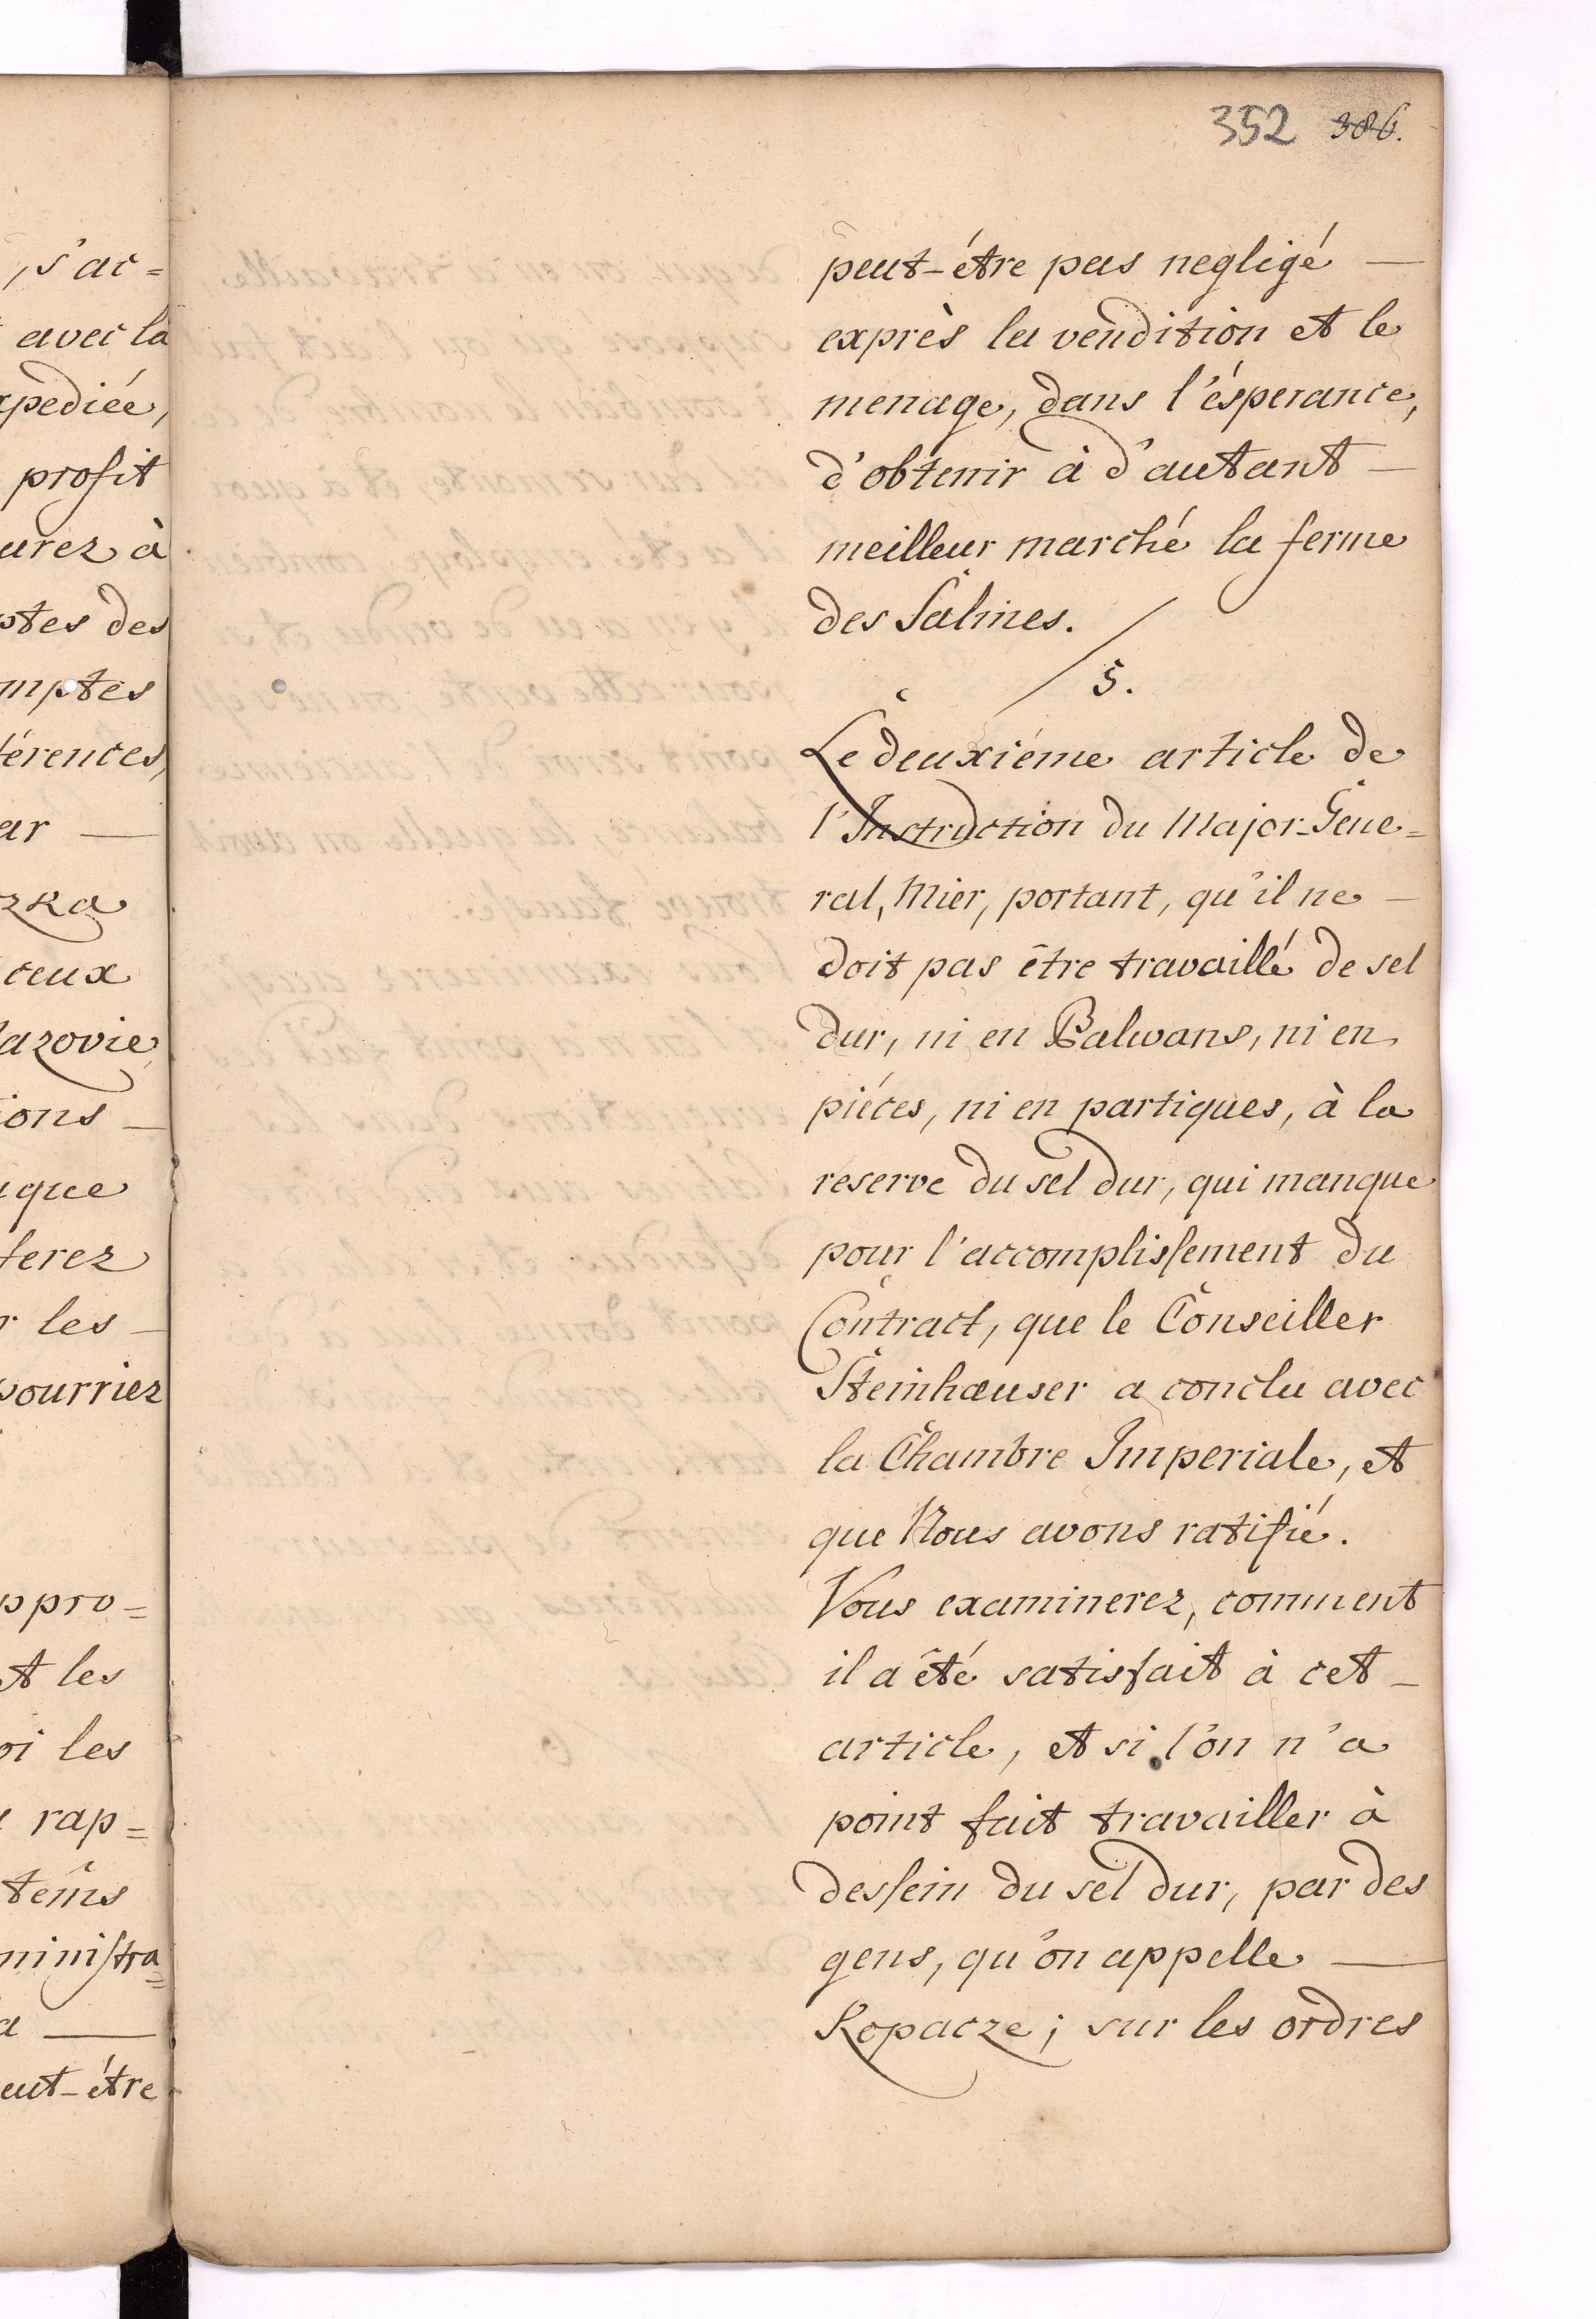 , s'ac=
avec la
xpediée,
profit
urez à
ptes des
mptes
férences,
ar —
zka
ceux
Mazovie
ions —
ique
ferez
r les —
pourriez
ppro=
et les
oi les
rap=
tems
ministra=
a —
eut-étre
352 386.
peut-étre pas negligé —
exprès la vendition et le
menage, dans l'ésperance,
d'obtenir à d'autant —
meilleur marché la ferme
des Salines.
5.
Le deuxiéme article de
l'Instruction du Major-Gene=
ral, Mier, portant, qu'il ne —
doit pas être travaillé de sel
dur, ni en Balwans, ni en
piéces, ni en partiques, à la
reserve du sel dur, qui manque
pour l'accomplissement du
Contract, que le Conseiller
Steinhæuser a conclu avec
la Chambre Imperiale, et
que Nous avons ratifié.
Vous examinerez, comment
il a êté satisfait à cet —
article, et si l'on n'a
point fait travailler à
dessein du sel dur, par des
gens, qu'on appelle —
Kopacze; sur les ordres